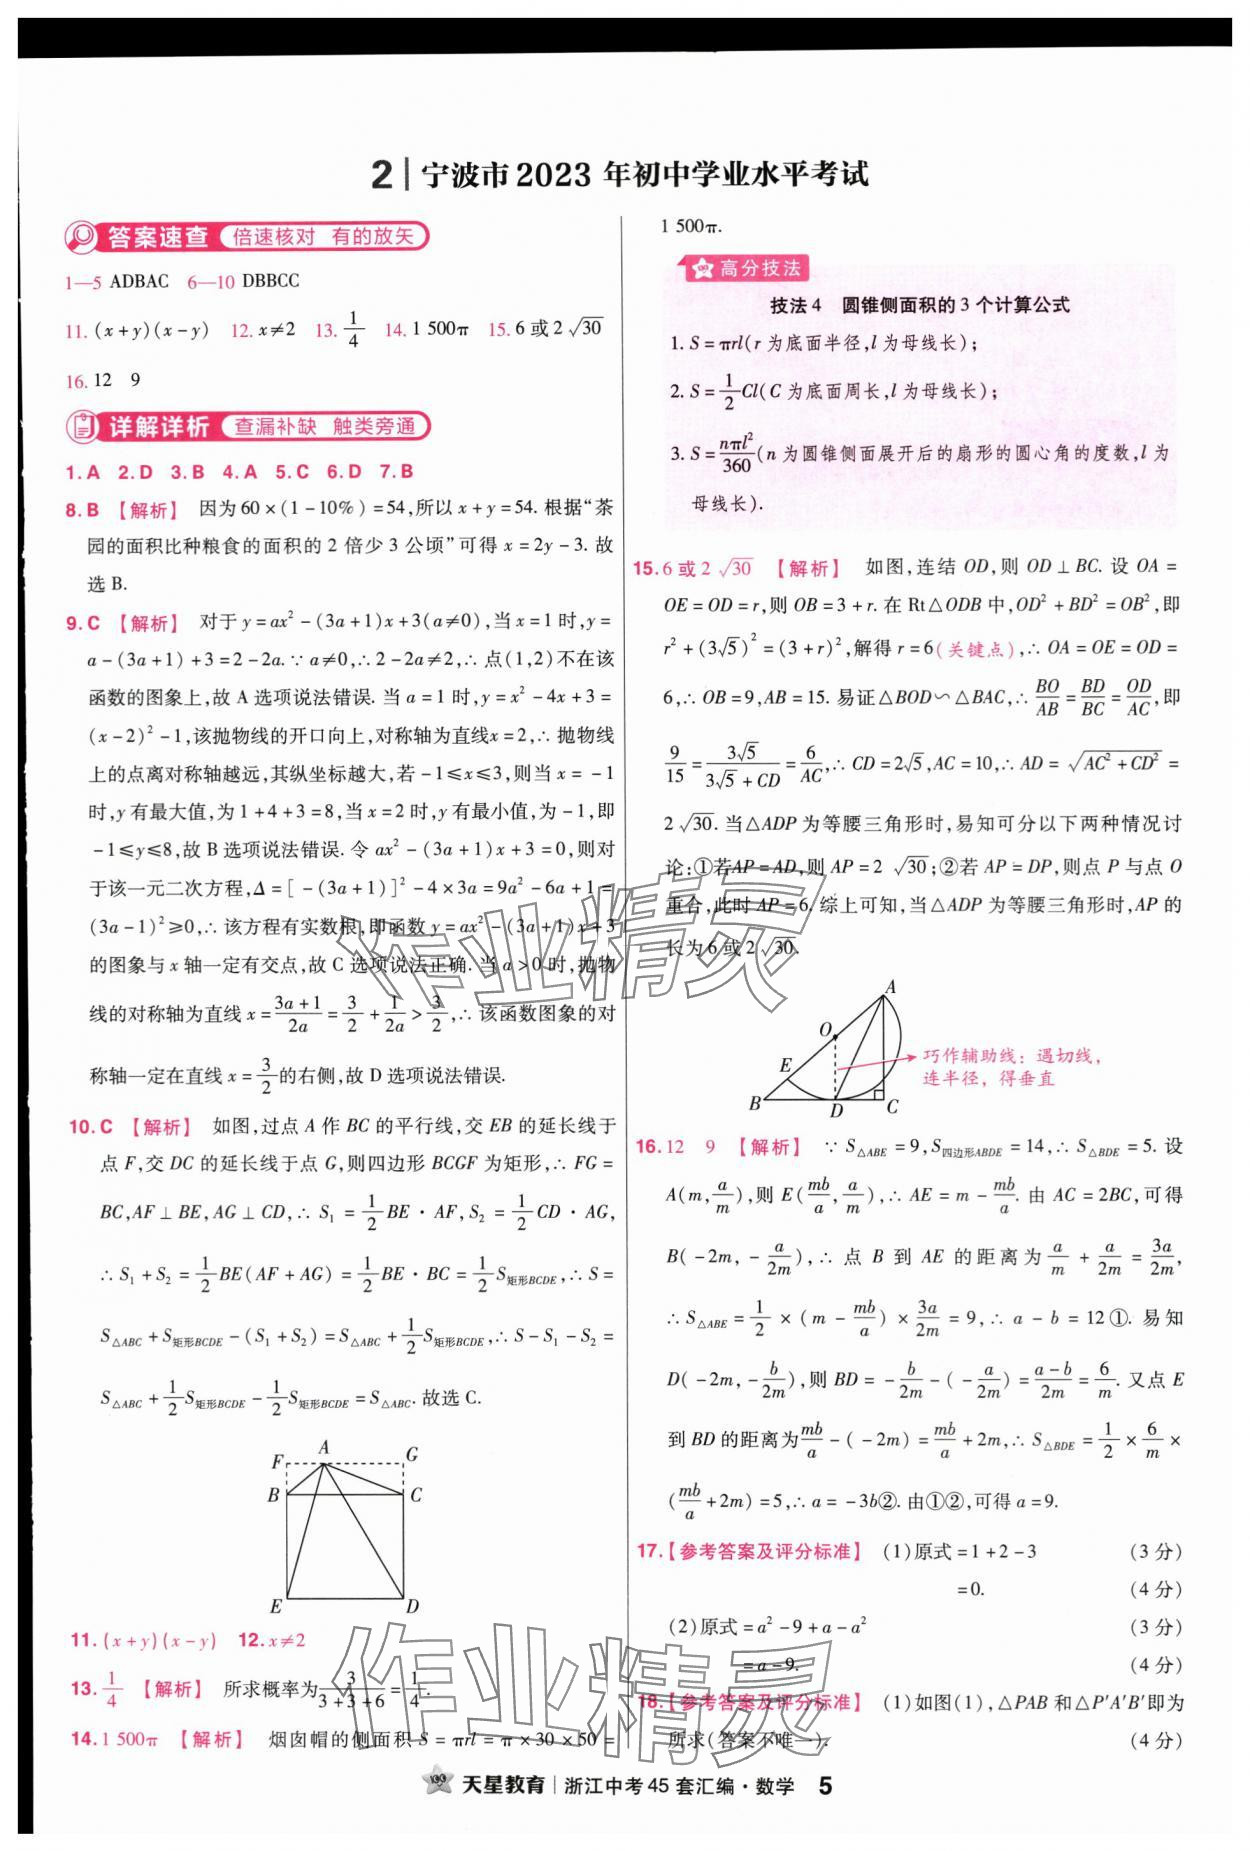 2 | 宁波市 2023 年初中学业水平考试
答案速查 倍速核对 有的放矢
1—5 ADBAC 6—10 DBBCC
11. (x+y)(x-y) 12. x≠2 13. 1/4 14. 1 500π 15. 6 或 2√30
16. 12 9
详解详析 查漏补缺 触类旁通
1. A 2. D 3. B 4. A 5. C 6. D 7. B
8. B 【解析】 因为 60×(1-10%)=54,所以 x+y=54. 根据“茶
园的面积比种粮食的面积的 2 倍少 3 公顷”可得 x=2y-3. 故
选 B.
9. C 【解析】 对于 y=ax²-(3a+1)x+3(a≠0),当 x=1 时,y=
a-(3a+1)+3=2-2a. ∵a≠0,∴2-2a≠2,∴点(1,2)不在该
函数的图象上,故 A 选项说法错误. 当 a=1 时,y=x²-4x+3=
(x-2)²-1,该抛物线的开口向上,对称轴为直线x=2,∴抛物线
上的点离对称轴越远,其纵坐标越大,若-1≤x≤3,则当 x=-1
时,y 有最大值,为 1+4+3=8,当 x=2 时,y 有最小值,为-1,即
-1≤y≤8,故 B 选项说法错误. 令 ax²-(3a+1)x+3=0,则对
于该一元二次方程,Δ=[-(3a+1)]²-4×3a=9a²-6a+1=
(3a-1)²≥0,∴该方程有实数根,即函数 y=ax²-(3a+1)x+3
的图象与 x 轴一定有交点,故 C 选项说法正确. 当 a>0 时,抛物
线的对称轴为直线 x=(3a+1)/2a=3/2+1/2a>3/2,∴该函数图象的对
称轴一定在直线 x=3/2的右侧,故 D 选项说法错误.
10. C 【解析】 如图,过点 A 作 BC 的平行线,交 EB 的延长线于
点 F,交 DC 的延长线于点 G,则四边形 BCGF 为矩形,∴FG=
BC,AF⊥BE,AG⊥CD,∴S₁=1/2BE·AF,S₂=1/2CD·AG,
∴S₁+S₂=1/2BE(AF+AG)=1/2BE·BC=1/2S矩形BCDE,∴S=
S△ABC+S矩形BCDE-(S₁+S₂)=S△ABC+1/2S矩形BCDE,∴S-S₁-S₂=
S△ABC+1/2S矩形BCDE-1/2S矩形BCDE=S△ABC. 故选 C.
F A G
B C
E D
11. (x+y)(x-y) 12. x≠2
13. 1/4 【解析】 所求概率为3/(3+3+6)=1/4.
14. 1 500π 【解析】 烟囱帽的侧面积 S=πrl=π×30×50=
1 500π.
高分技法
技法 4 圆锥侧面积的 3 个计算公式
1. S=πrl(r 为底面半径,l 为母线长);
2. S=1/2Cl(C 为底面周长,l 为母线长);
3. S=nπl²/360(n 为圆锥侧面展开后的扇形的圆心角的度数,l 为
母线长).
15. 6 或 2√30 【解析】 如图,连结 OD,则 OD⊥BC. 设 OA=
OE=OD=r,则 OB=3+r. 在 Rt△ODB 中,OD²+BD²=OB²,即
r²+(3√5)²=(3+r)²,解得 r=6(关键点),∴OA=OE=OD=
6,∴OB=9,AB=15. 易证△BOD∽△BAC,∴BO/AB=BD/BC=OD/AC,即
9/15=3√5/(3√5+CD)=6/AC,∴CD=2√5,AC=10,∴AD=√(AC²+CD²)=
2√30. 当△ADP 为等腰三角形时,易知可分以下两种情况讨
论:①若AP=AD,则 AP=2√30;②若 AP=DP,则点 P 与点 O
重合,此时 AP=6. 综上可知,当△ADP 为等腰三角形时,AP 的
长为 6 或 2√30.
A
O
E
B D C
巧作辅助线：遇切线，
连半径，得垂直
16. 12 9 【解析】 ∵S△ABE=9,S四边形ABDE=14,∴S△BDE=5. 设
A(m,a/m),则 E(mb/a,a/m),∴AE=m-mb/a. 由 AC=2BC,可得
B(-2m,-a/2m),∴点 B 到 AE 的距离为a/m+a/2m=3a/2m,
∴S△ABE=1/2×(m-mb/a)×3a/2m=9,∴a-b=12①. 易知
D(-2m,-b/2m),则 BD=-b/2m-(-a/2m)=(a-b)/2m=6/m. 又点 E
到 BD 的距离为mb/a-(-2m)=mb/a+2m,∴S△BDE=1/2×6/m×
(mb/a+2m)=5,∴a=-3b②. 由①②,可得 a=9.
17.【参考答案及评分标准】 (1)原式=1+2-3 (3 分)
=0. (4 分)
(2)原式=a²-9+a-a² (3 分)
=a-9. (4 分)
18.【参考答案及评分标准】 (1)如图(1),△PAB 和△P'A'B'即为
所求(答案不唯一). (4 分)
作业精灵
作业精灵
天星教育 | 浙江中考 45 套汇编·数学 5